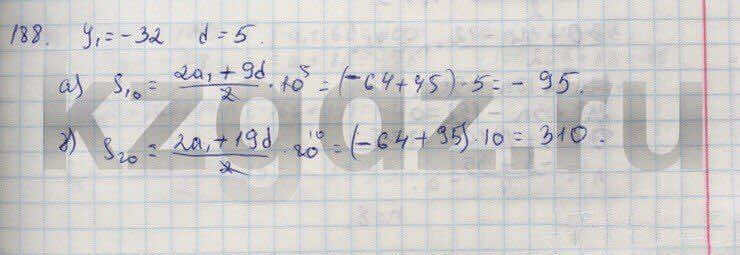 188. y₁ = -32 d = 5.
а) S₁₀ = (2a₁ + 9d)/2 · 10⁵ = (-64 + 45) · 5 = - 95.
б) S₂₀ = (2a₁ + 19d)/2 · 20¹⁰ = (-64 + 95) · 10 = 310.
kzgdz.ru